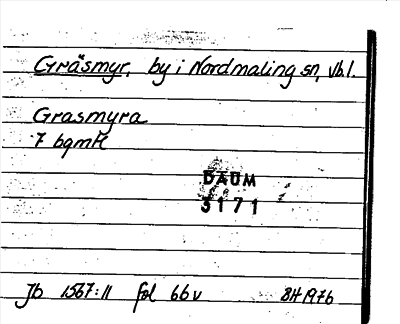 Gräsmyr, by i Nordmaling sn, vb.l.
Grasmyra
7 bqmk
DAUM
3171
Jb 1567:11 fol 66v BH 1976